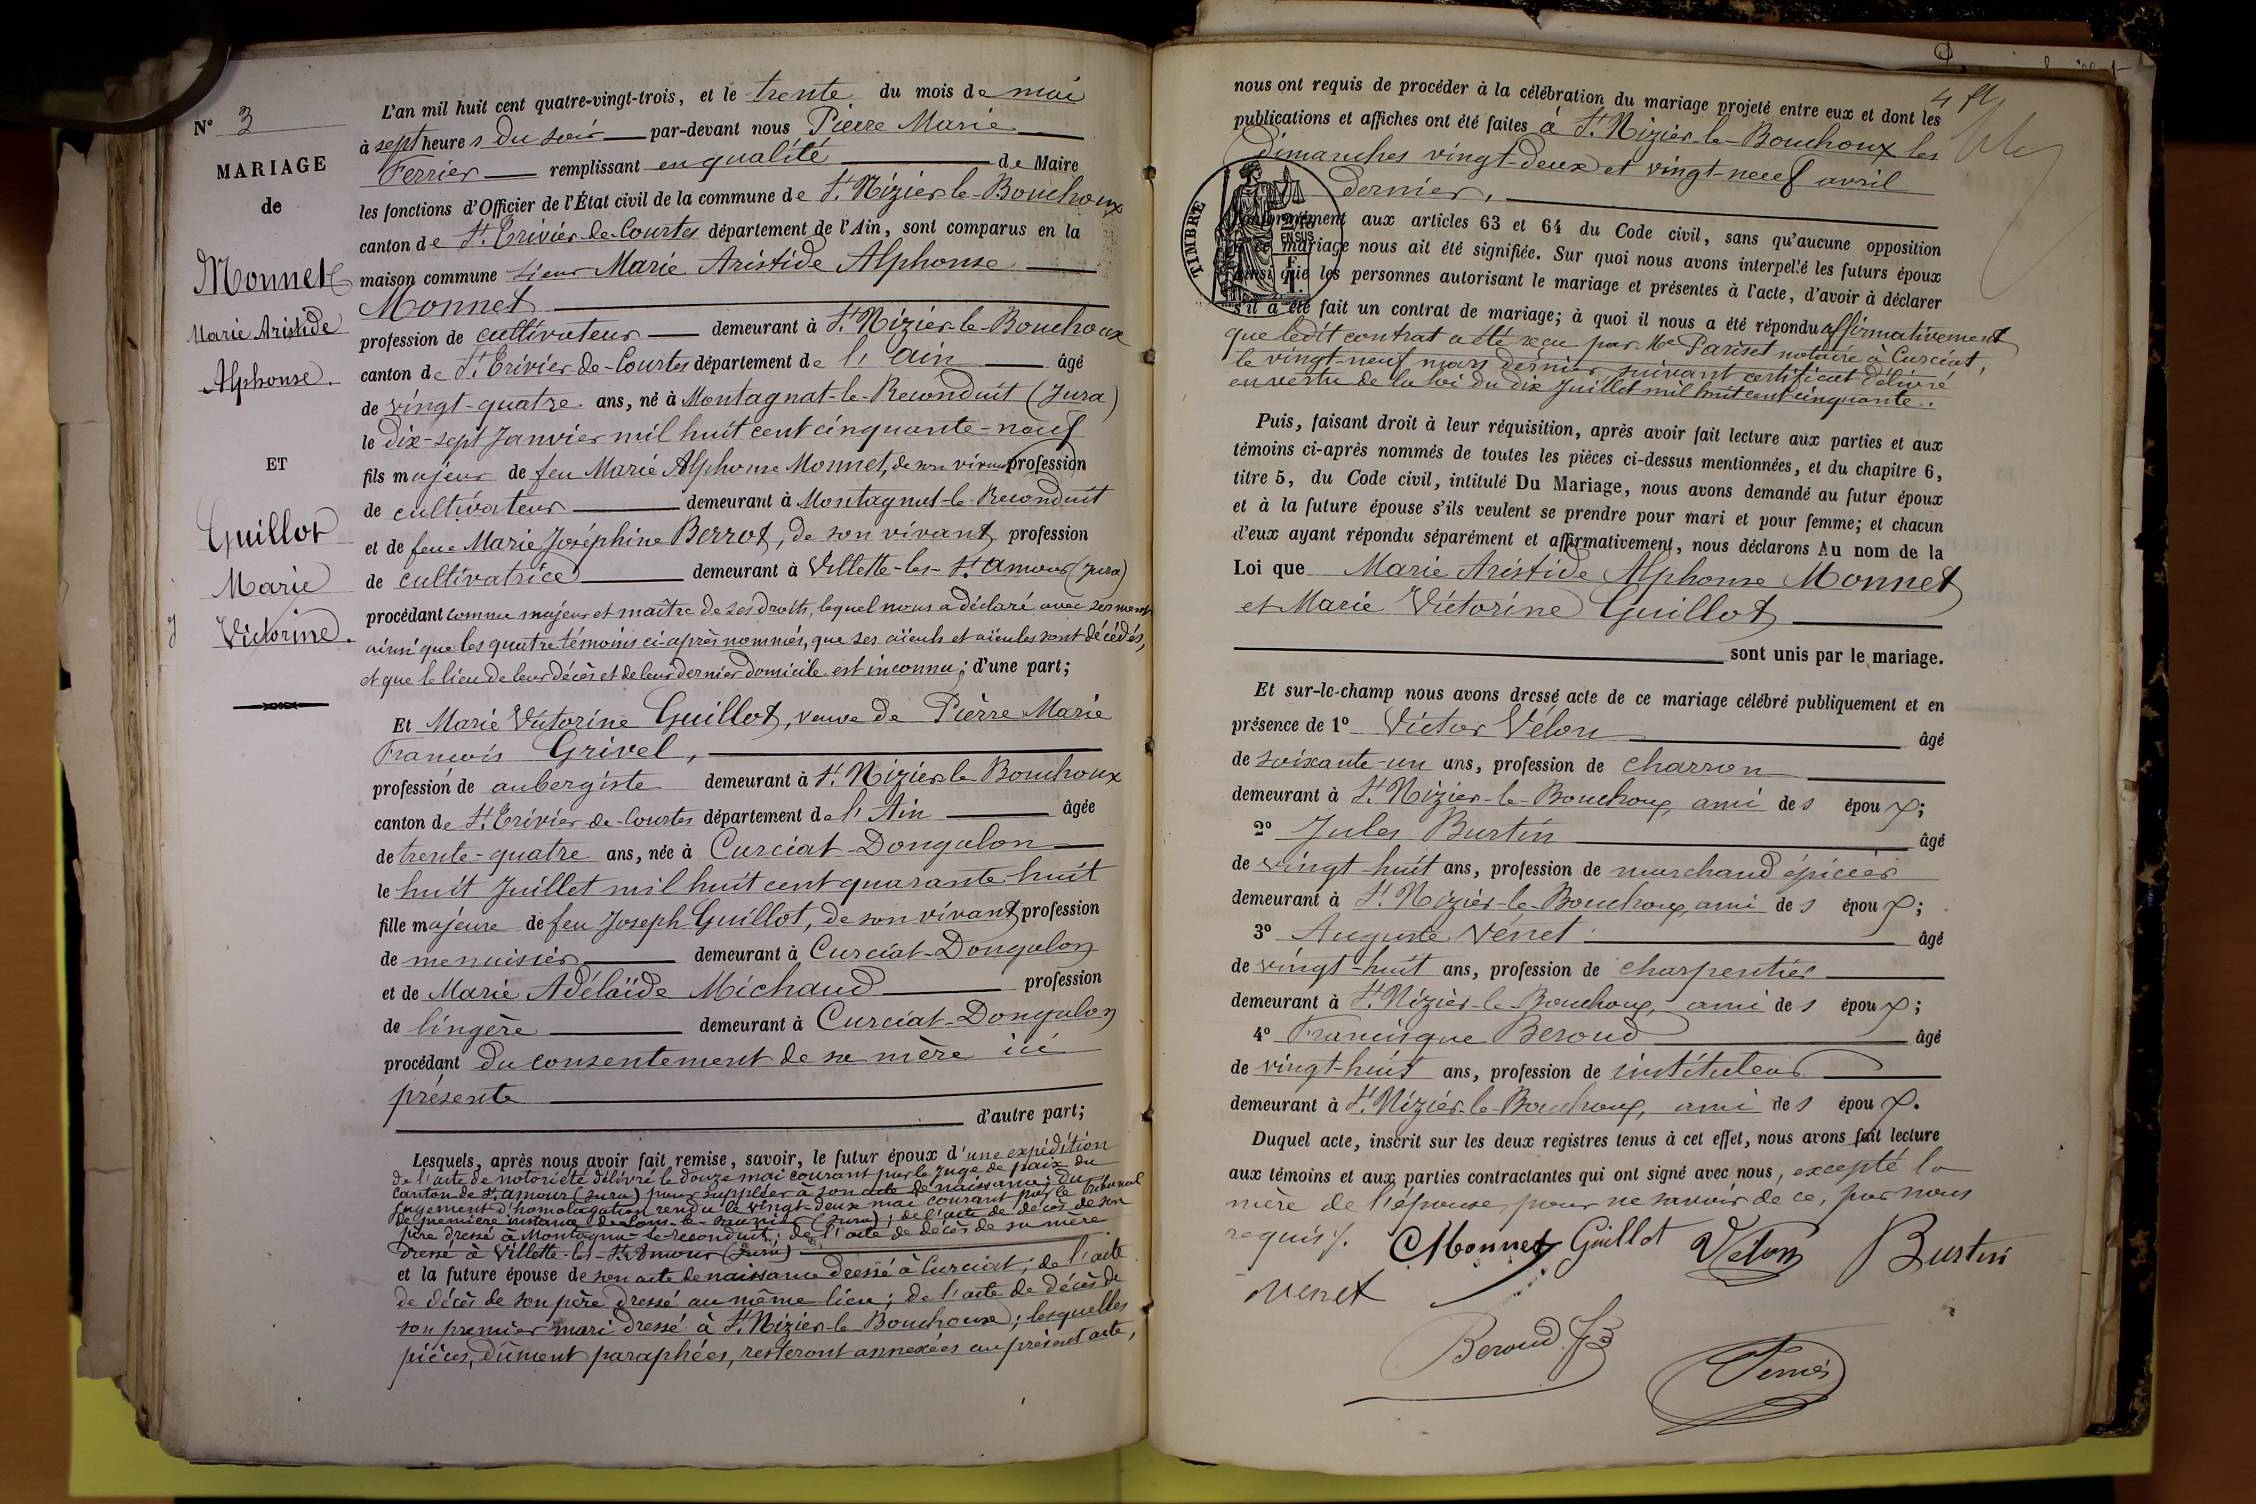 N° 3
MARIAGE
de
Monnet
Marie Aristide
Alphonse.
ET
Guillot
Marie
Victorine.
L'an mil huit cent quatre-vingt-trois, et le trente du mois de mai
à sept heures du soir par-devant nous Pierre Marie
Ferrier remplissant en qualité de Maire
les fonctions d'Officier de l'État civil de la commune de St Nizier-le-Bouchoux
canton de St Trivier-de-Courtes département de l'Ain, sont comparus en la
maison commune sieur Marie Aristide Alphonse
Monnet
profession de cultivateur demeurant à St Nizier-le-Bouchoux
canton de St Trivier-de-Courtes département de l'Ain âgé
de vingt-quatre ans, né à Montagnat-le-Reconduit (Jura)
le dix-sept Janvier mil huit cent cinquante-neuf
fils majeur de feu Marie Alphonse Monnet, de son vivant profession
de cultivateur demeurant à Montagnat-le-Reconduit
et de feue Marie Joséphine Berrot, de son vivant profession
de cultivatrice demeurant à Villette-les-St Amour (Jura)
procédant comme majeur et maître de ses droits, lequel nous a déclaré avec serment
ainsi que les quatre témoins ci-après nommés, que ses aïeuls et aïeules sont décédés,
et que le lieu de leur décès et de leur dernier domicile est inconnu; d'une part;
Et Marie Victorine Guillot, veuve de Pierre Marie
François Grivel,
profession de aubergiste demeurant à St Nizier-le-Bouchoux
canton de St Trivier-de-Courtes département de l'Ain âgée
de trente-quatre ans, née à Curciat-Dongalon
le huit Juillet mil huit cent quarante-huit
fille majeure de feu Joseph Guillot, de son vivant profession
de menuisier demeurant à Curciat-Dongalon
et de Marie Adélaïde Michaud profession
de lingère demeurant à Curciat-Dongalon
procédant du consentement de sa mère ici
présente
d'autre part;
Lesquels, après nous avoir fait remise, savoir, le futur époux d'une expédition
de l'acte de notoriété délivré le douze mai courant par le Juge de paix du
canton de St Amour (Jura) pour suppléer à son acte de naissance; du
jugement d'homologation rendu le vingt-deux mai courant par le tribunal
de première instance de Lons-le-Saunier (Jura); de l'acte de décès de son
père dressé à Montagna-le-reconduit; de l'acte de décès de sa mère
dressé à Villette-les-St Amour (Jura)
et la future épouse de son acte de naissance dressé à Curciat; de l'acte
de décès de son père dressé au même lieu; de l'acte de décès de
son premier mari dressé à St Nizier-le-Bouchoux; lesquelles
pièces, dûment paraphées, resteront annexées au présent acte,
nous ont requis de procéder à la célébration du mariage projeté entre eux et dont les
publications et affiches ont été faites à St Nizier-le-Bouchoux les
dimanches vingt-deux et vingt-neuf avril
dernier,
TIMBRE
EN SUS
conformément aux articles 63 et 64 du Code civil, sans qu'aucune opposition
mariage nous ait été signifiée. Sur quoi nous avons interpellé les futurs époux
ainsi que les personnes autorisant le mariage et présentes à l'acte, d'avoir à déclarer
s'il a été fait un contrat de mariage; à quoi il nous a été répondu affirmativement
que ledit contrat a été reçu par Me Pariset notaire à Curciat,
le vingt-neuf mars dernier, suivant certificat délivré
en vertu de la loi du dix Juillet mil huit cent cinquante.
Puis, faisant droit à leur réquisition, après avoir fait lecture aux parties et aux
témoins ci-après nommés de toutes les pièces ci-dessus mentionnées, et du chapitre 6,
titre 5, du Code civil, intitulé Du Mariage, nous avons demandé au futur époux
et à la future épouse s'ils veulent se prendre pour mari et pour femme; et chacun
d'eux ayant répondu séparément et affirmativement, nous déclarons Au nom de la
Loi que Marie Aristide Alphonse Monnet
et Marie Victorine Guillot
sont unis par le mariage.
Et sur-le-champ nous avons dressé acte de ce mariage célébré publiquement et en
présence de 1° Victor Vélon âgé
de soixante-un ans, profession de charron
demeurant à St Nizier-le-Bouchoux, ami des époux;
2° Jules Burtin âgé
de vingt-huit ans, profession de marchand épicier
demeurant à St Nizier-le-Bouchoux, ami des époux;
3° Auguste Vénet âgé
de vingt-huit ans, profession de charpentier
demeurant à St Nizier-le-Bouchoux, ami des époux;
4° Francisque Beroud âgé
de vingt-huit ans, profession de instituteur
demeurant à St Nizier-le-Bouchoux, ami des époux.
Duquel acte, inscrit sur les deux registres tenus à cet effet, nous avons fait lecture
aux témoins et aux parties contractantes qui ont signé avec nous, excepté la
mère de l'épouse, pour ne savoir de ce, par nous
requis.
Monnet Guillot Vélon Burtin
Venet
Beroud
Ferrier